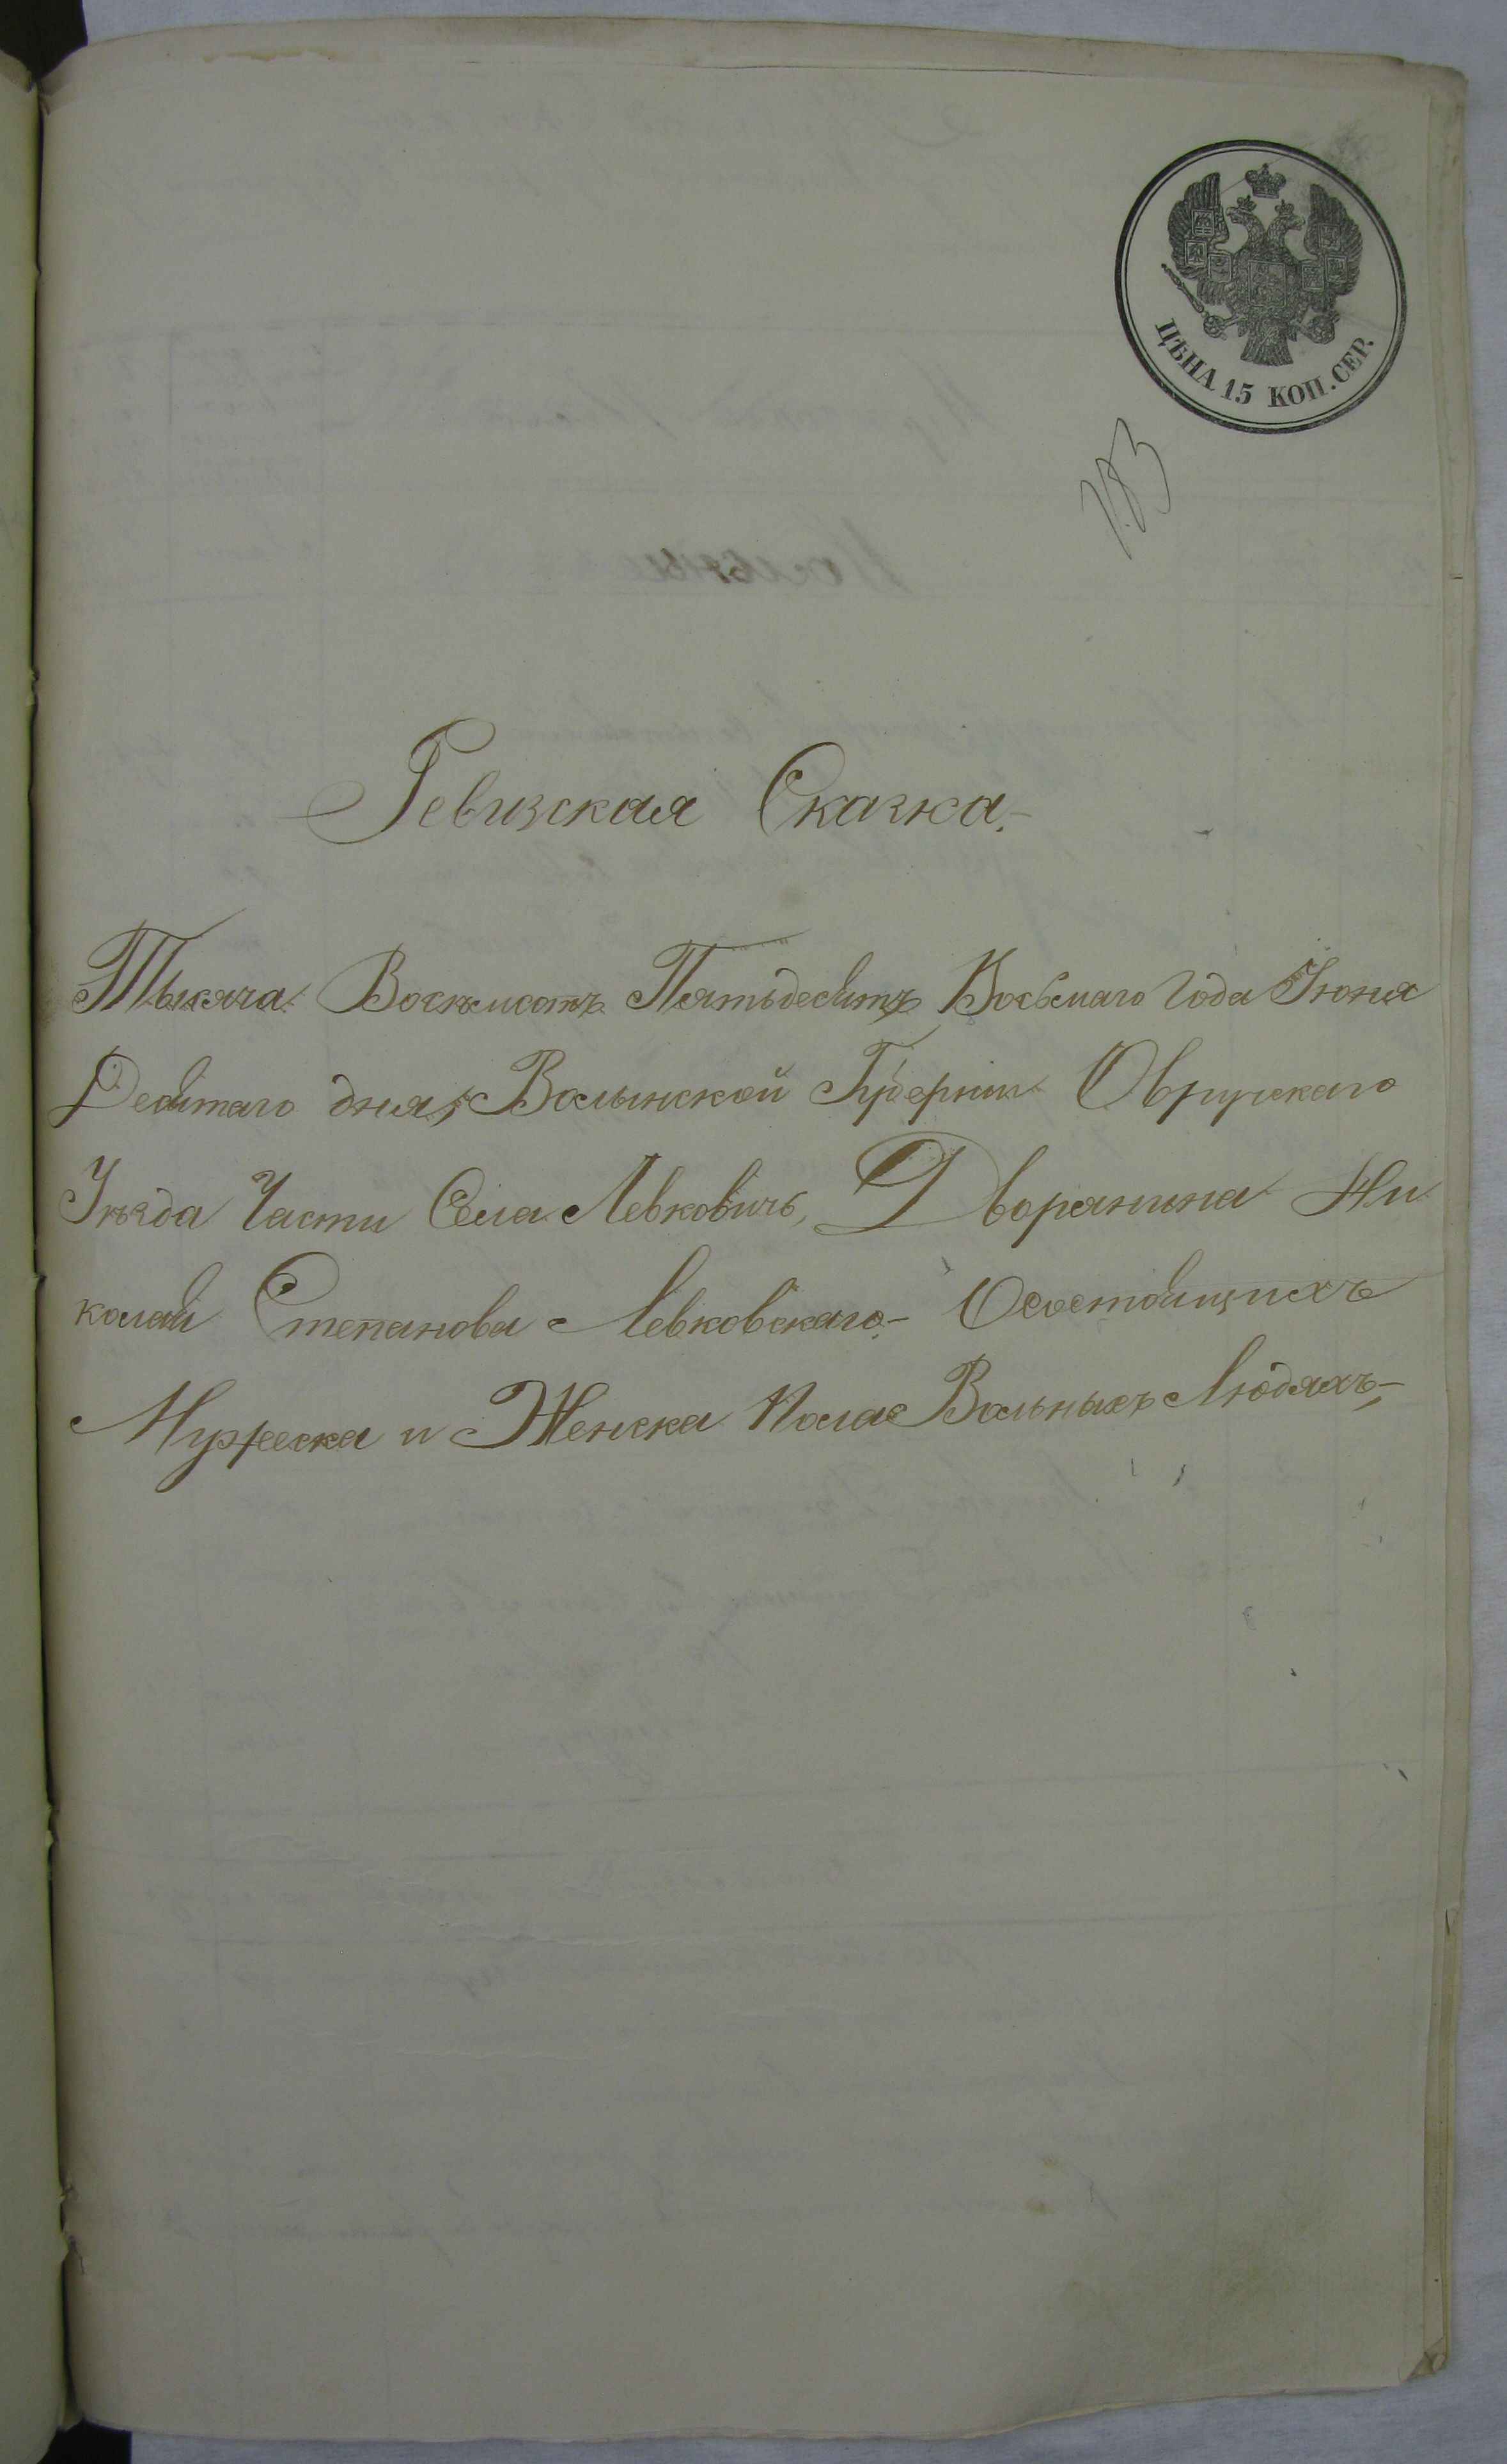 ЦѢНА 15 КОП. СЕР.
Ревизская Сказка.-
Тысяча Восемсотъ Пятьдесятъ Восьмаго Года Июня
Десятаго дня, Волынской Губернии Овручскаго
Уѣзда Части Села Левковичь, Дворянина Ни
колая Степанова Левковскаго.- О состоящихъ
Мужеска и Женска Пола Вольныхъ Людяхъ,-